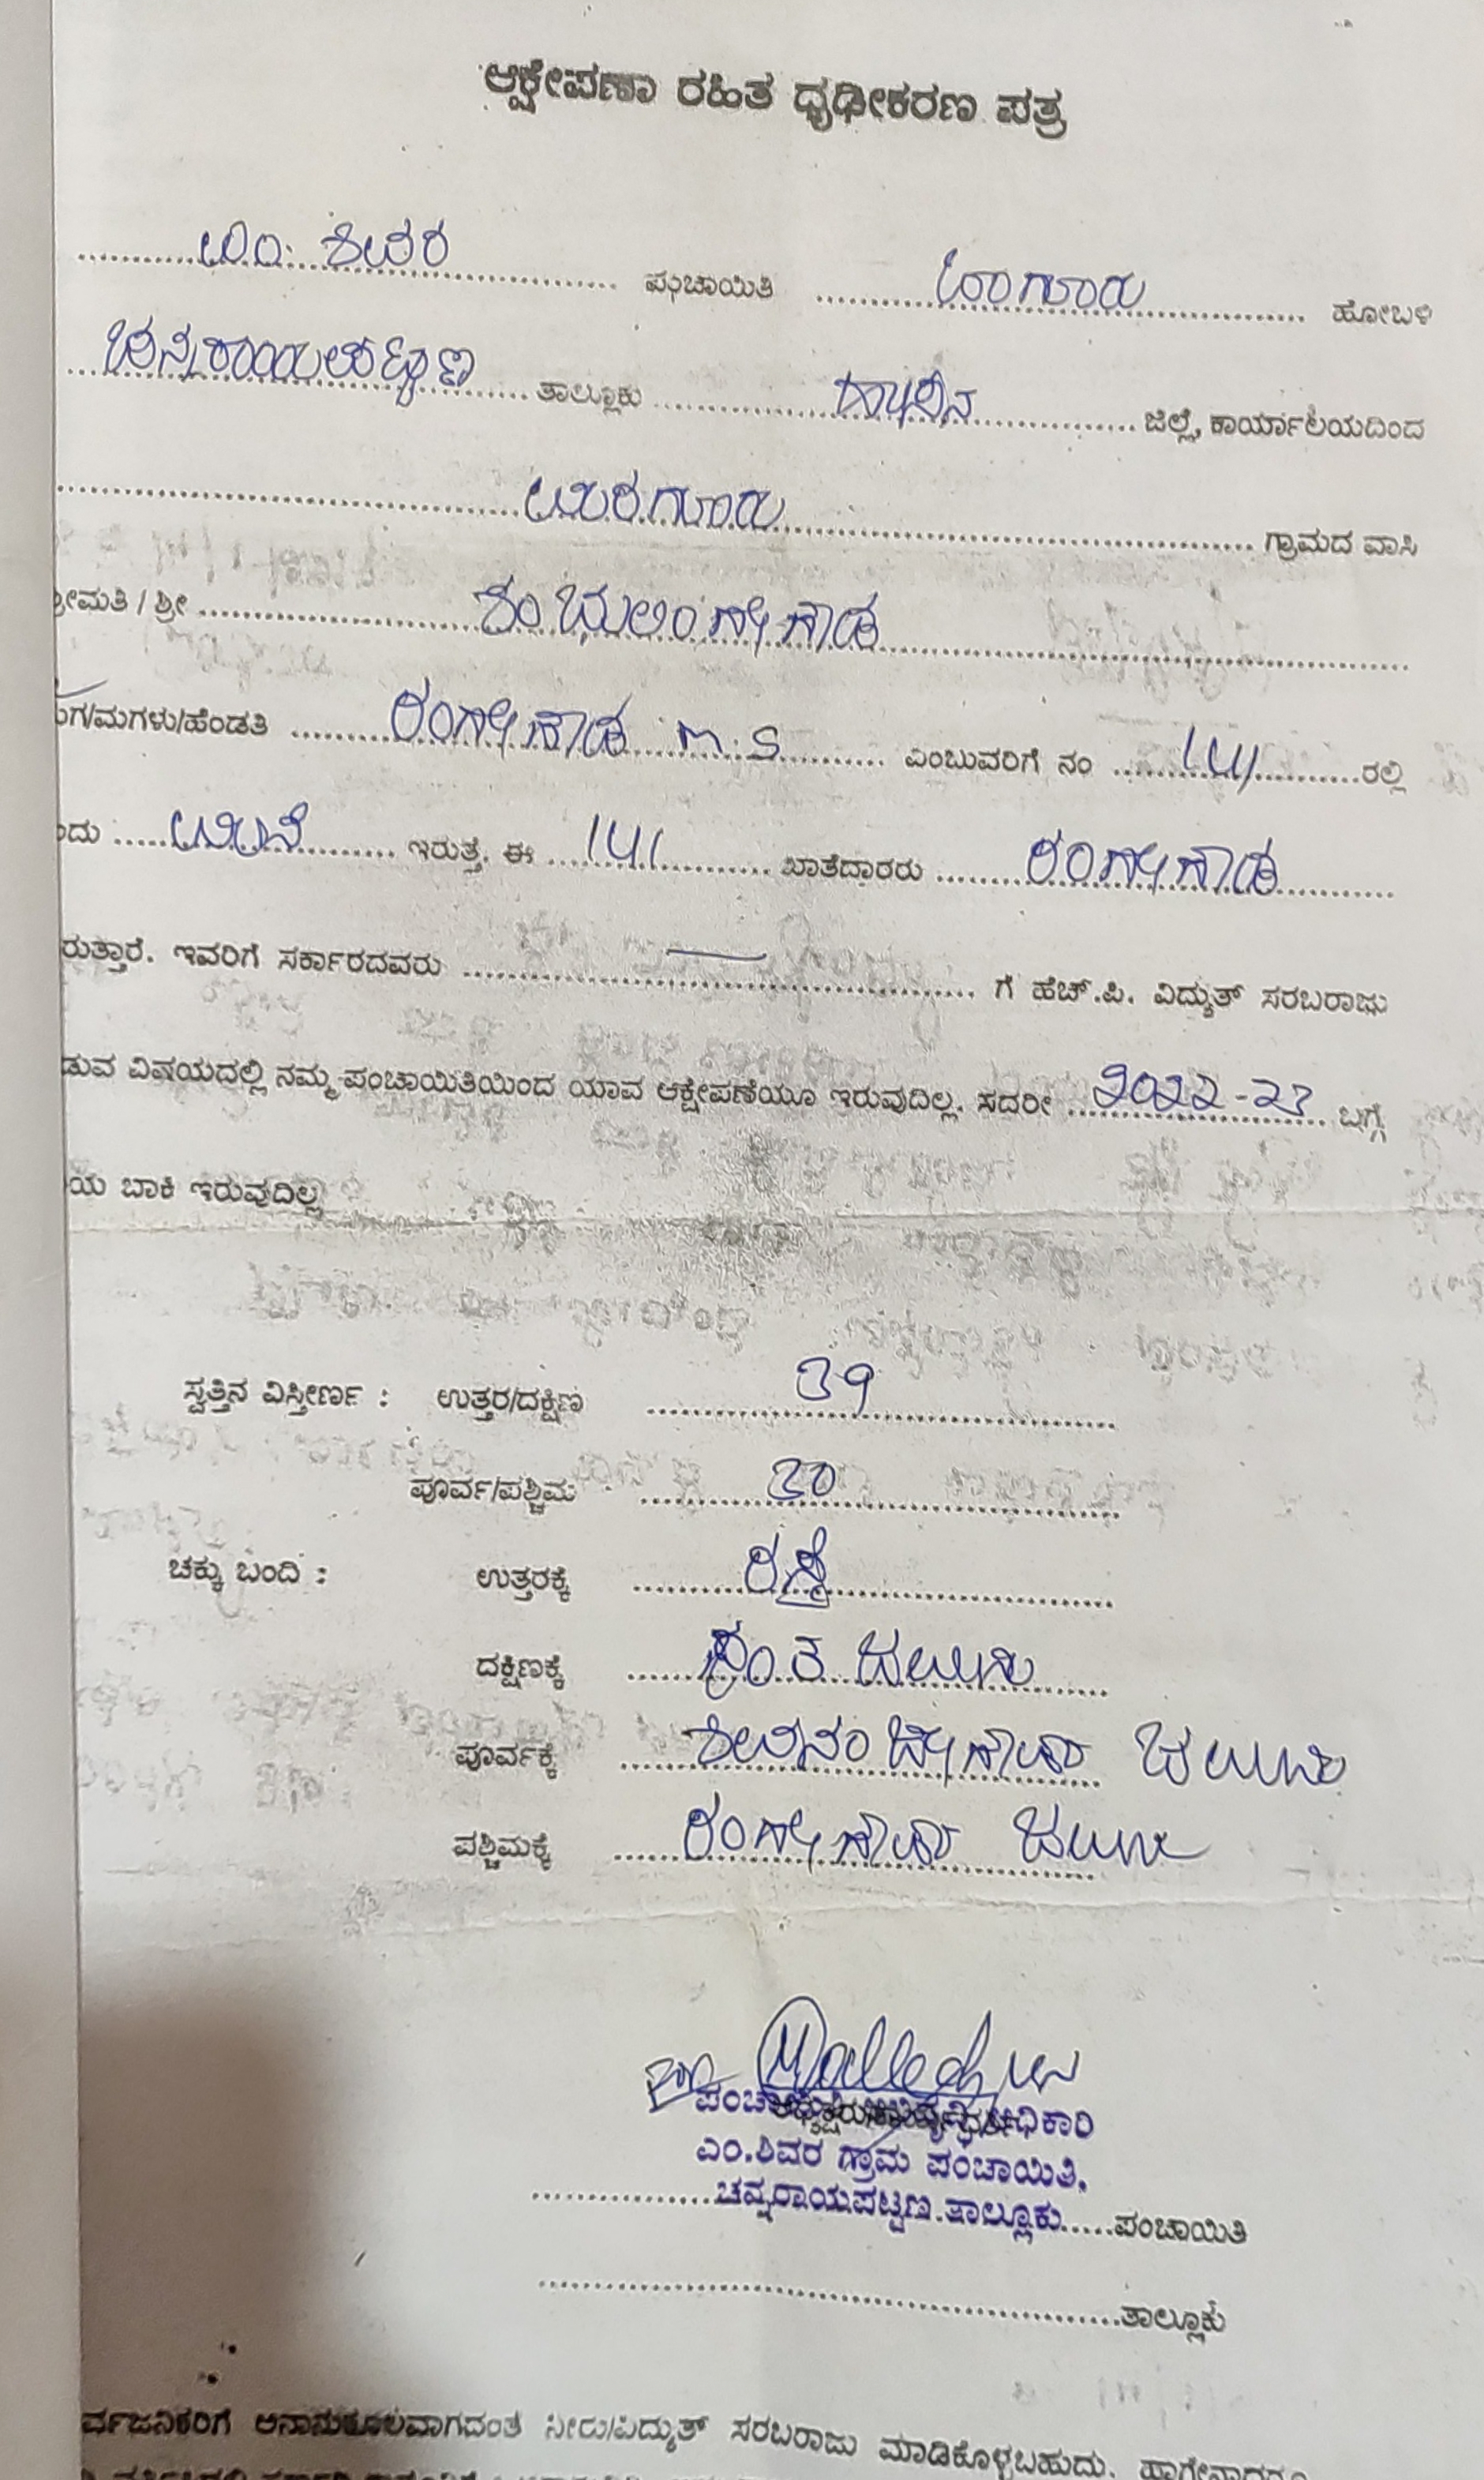 ಆಕ್ಷೇಪಣಾ ರಹಿತ ಧೃಢೀಕರಣ ಪತ್ರ
ಎಂ. ಶಿವರ ಪಂಚಾಯಿತಿ ಬಾಗೂರು ಹೋಬಳಿ
ಚನ್ನರಾಯಪಟ್ಟಣ ತಾಲ್ಲೂಕು ಹಾಸನ ಜಿಲ್ಲೆ, ಕಾರ್ಯಾಲಯದಿಂದ
ಗ್ರಾಮದ ವಾಸಿ
ಶ್ರೀಮತಿ / ಶ್ರೀ ಶಂಭುಲಿಂಗೇಗೌಡ
ಮಗ/ಮಗಳು/ಹೆಂಡತಿ ರಂಗೇಗೌಡ M.S ಎಂಬುವರಿಗೆ ನಂ 141 ರಲ್ಲಿ
ಂದು ಮನೆ ಇರುತ್ತೆ. ಈ 141 ಖಾತೆದಾರರು ರಂಗೇಗೌಡ
ರುತ್ತಾರೆ. ಇವರಿಗೆ ಸರ್ಕಾರದವರು — ಗೆ ಹೆಚ್.ಪಿ. ವಿದ್ಯುತ್ ಸರಬರಾಜು
ಡುವ ವಿಷಯದಲ್ಲಿ ನಮ್ಮ ಪಂಚಾಯಿತಿಯಿಂದ ಯಾವ ಆಕ್ಷೇಪಣೆಯೂ ಇರುವುದಿಲ್ಲ. ಸದರೀ 2022-23 ಬಗ್ಗೆ
ಯ ಬಾಕಿ ಇರುವುದಿಲ್ಲ
ಸ್ವತ್ತಿನ ವಿಸ್ತೀರ್ಣ : ಉತ್ತರ/ದಕ್ಷಿಣ 39
ಪೂರ್ವ/ಪಶ್ಚಿಮ 30
ಚಕ್ಕು ಬಂದಿ : ಉತ್ತರಕ್ಕೆ ರಸ್ತೆ
ದಕ್ಷಿಣಕ್ಕೆ ಸ್ವಂತ ಜಮೀನು
ಪೂರ್ವಕ್ಕೆ ಶಿವನಂಜೇಗೌಡರ ಜಮೀನು
ಪಶ್ಚಿಮಕ್ಕೆ ರಂಗೇಗೌಡರ ಜಮೀನು
ಪಂಚಾಯಿತಿ ಅಭಿವೃದ್ಧಿ ಅಧಿಕಾರಿ
ಎಂ.ಶಿವರ ಗ್ರಾಮ ಪಂಚಾಯಿತಿ.
ಚನ್ನರಾಯಪಟ್ಟಣ ತಾಲ್ಲೂಕು ಪಂಚಾಯಿತಿ
ತಾಲ್ಲೂಕು
ರ್ವಜನಿಕರಿಗೆ ಅನಾನುಕೂಲವಾಗದಂತೆ ನೀರು/ವಿದ್ಯುತ್ ಸರಬರಾಜು ಮಾಡಿಕೊಳ್ಳಬಹುದು. ಹಾಗೇನಾದರೂ